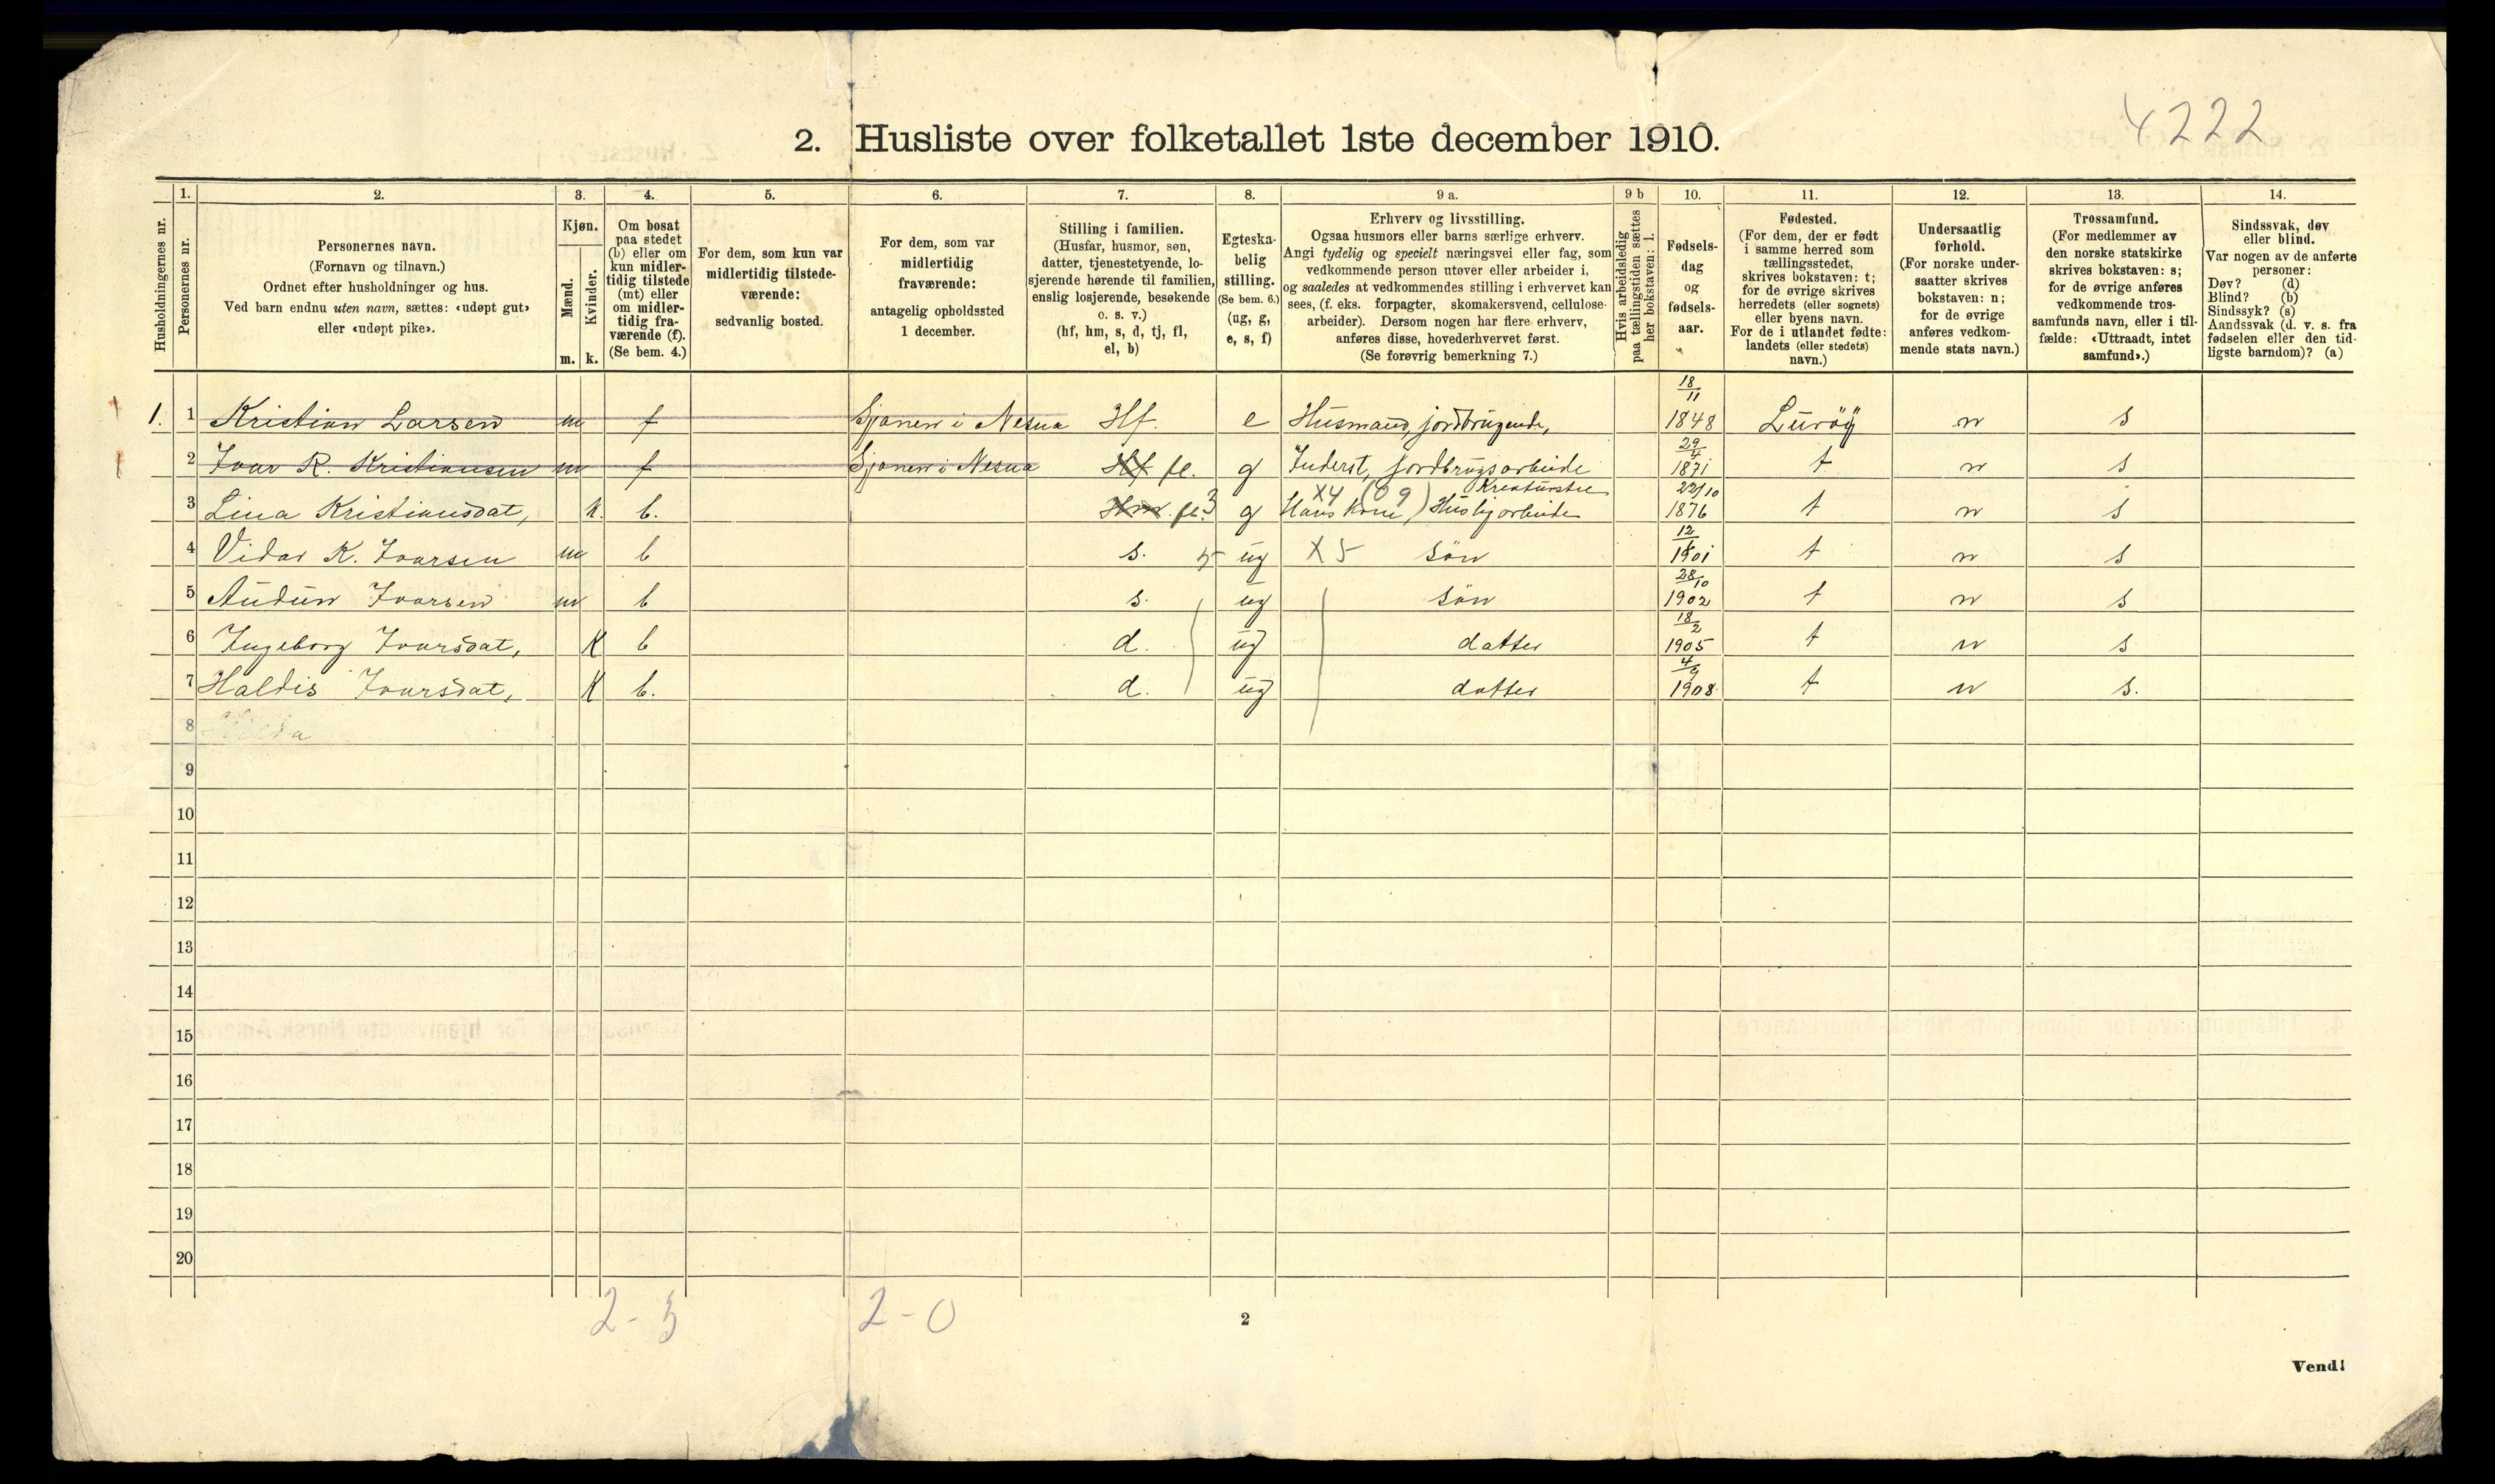 4222
2. Husliste over folketallet 1ste december 1910.
Husholdningernes nr.
1.
Personernes nr.
2.
Personernes navn.
(Fornavn og tilnavn.)
Ordnet efter husholdninger og hus.
Ved barn endnu uten navn, sættes: «udøpt gut»
eller «udøpt pike».
3.
Kjøn.
Mænd.
Kvinder.
m. k.
4.
Om bosat
paa stedet
(b) eller om
kun midler-
tidig tilstede
(mt) eller
om midler-
tidig fra-
værende (f).
(Se bem. 4.)
5.
For dem, som kun var
midlertidig tilstede-
værende:
sedvanlig bosted.
6.
For dem, som var
midlertidig
fraværende:
antagelig opholdssted
1 december.
7.
Stilling i familien.
(Husfar, husmor, søn,
datter, tjenestetyende, lo-
sjerende hørende til familien,
enslig losjerende, besøkende
o. s. v.)
(hf, hm, s, d, tj, fl,
el, b)
8.
Egteska-
belig
stilling.
(Se bem. 6.)
(ug, g,
e, s, f)
9 a.
Erhverv og livsstilling.
Ogsaa husmors eller barns særlige erhverv.
Angi tydelig og specielt næringsvei eller fag, som
vedkommende person utøver eller arbeider i,
og saaledes at vedkommendes stilling i erhvervet kan
sees, (f. eks. forpagter, skomakersvend, cellulose-
arbeider). Dersom nogen har flere erhverv,
anføres disse, hovederhvervet først.
(Se forøvrig bemerkning 7.)
9 b
Hvis arbeidsledig
paa tællingstiden sættes
her bokstaven: l.
10.
Fødsels-
dag
og
fødsels-
aar.
11.
Fødested.
(For dem, der er født
i samme herred som
tællingsstedet,
skrives bokstaven: t;
for de øvrige skrives
herredets (eller sognets)
eller byens navn.
For de i utlandet fødte:
landets (eller stedets)
navn.)
12.
Undersaatlig
forhold.
(For norske under-
saatter skrives
bokstaven: n;
for de øvrige
anføres vedkom-
mende stats navn.)
13.
Trossamfund.
(For medlemmer av
den norske statskirke
skrives bokstaven: s;
for de øvrige anføres
vedkommende tros-
samfunds navn, eller i til-
fælde: «Uttraadt, intet
samfund».)
14.
Sindssvak, døv
eller blind.
Var nogen av de anførte
personer:
Døv? (d)
Blind? (b)
Sindssyk? (s)
Aandssvak (d. v. s. fra
fødselen eller den tid-
ligste barndom)? (a)
1. 1 Kristian Larsen m f Sjonen i Nesna Hf. e Husmand, jordbrugende, 18/11 1848 Lurøy n s
2 Ivar R. Kristiansen m f Sjonen i Nesna Hf fl. g Inderst, jordbrugsarbeide 29/4 1871 t n s
3 Lina Kristiansdat, k. b. Hm. fl. 3 g Hans kone, Husligarbeide Kreaturstel X4 (09) 22/10 1876 t n s
4 Vidar K. Ivarsen m b s. 5 ug X5 søn 12/ 1901 t n s
5 Audun Ivarsen m b s. ug søn 28/10 1902 t n s
6 Ingeborg Ivarsdat, K b d. ug datter 18/2 1905 t n s
7 Haldis Ivarsdat, K b. d. ug datter 4/9 1908 t n s.
8
9
10
11
12
13
14
15
16
17
18
19
20
2-5 2-0
2
Vend!